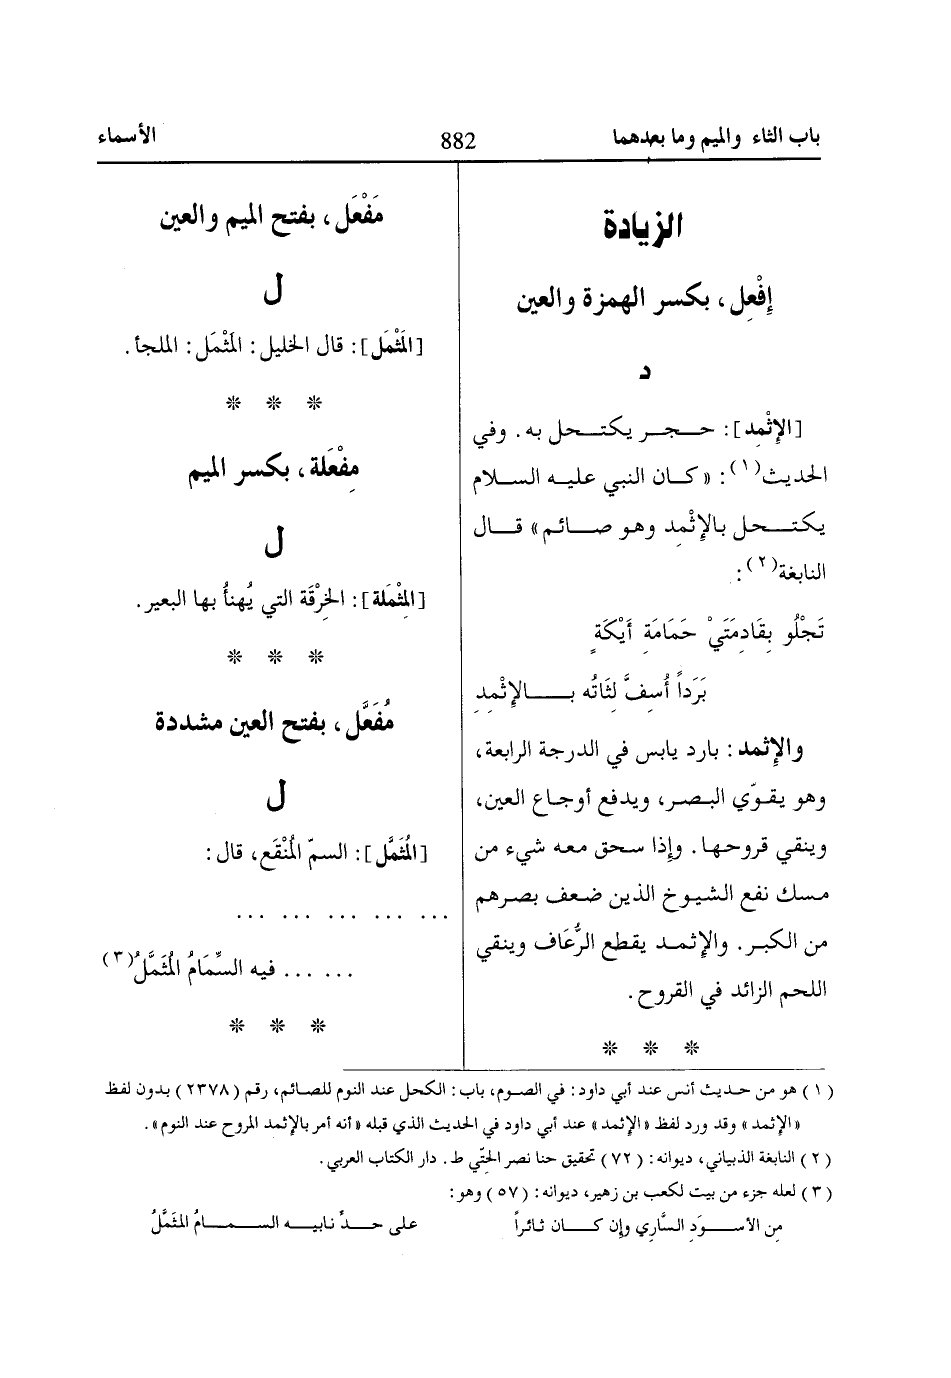 باب الثاء والميم وما بعدهما
882
الأسماء
الزيادة
إِفْعِل، بكسر الهمزة والعين
د
[الإِثْمِد]: حجر يكتحل به. وفي
الحديث(١): «كان النبي عليه السلام
يكتحل بالإِثْمِد وهو صائم» قال
النابغة(٢):
تَجْلُو بِقَادِمَتَيْ حَمَامَةِ أَيْكَةٍ
بَرَداً أُسِفَّ لِثَاتُه بالإِثْمِدِ
والإِثمد: بارد يابس في الدرجة الرابعة،
وهو يقوّي البصر، ويدفع أوجاع العين،
وينقي قروحها. وإِذا سحق معه شيء من
مسك نفع الشيوخ الذين ضعف بصرهم
من الكبر. والإِثمد يقطع الرُّعَاف وينقي
اللحم الزائد في القروح.
* * *
مَفْعَل، بفتح الميم والعين
ل
[المَثْمَل]: قال الخليل: المَثْمَل: الملجأ.
* * *
مِفْعَلة، بكسر الميم
ل
[المِثْمَلة]: الخِرْقَة التي يُهنأُ بها البعير.
* * *
مُفَعَّل، بفتح العين مشددة
ل
[المُثَمَّل]: السمّ المُنْقَع، قال:
... ... ... ... ... ...
... ... فيه السِّمَامُ المُثَمَّلُ(٣)
* * *
(١) هو من حديث أنس عند أبي داود: في الصوم، باب: الكحل عند النوم للصائم، رقم (٢٣٧٨) بدون لفظ
«الإثمد» وقد ورد لفظ «الإثمد» عند أبي داود في الحديث الذي قبله «أنه أمر بالإثمد المروح عند النوم».
(٢) النابغة الذبياني، ديوانه: (٧٢) تحقيق حنا نصر الحتّي ط. دار الكتاب العربي.
(٣) لعله جزء من بيت لكعب بن زهير، ديوانه: (٥٧) وهو:
مِن الأسوَدِ السَّاري وإن كان ثائراً على حدِّ نابيه السمامُ المثمَّلُ